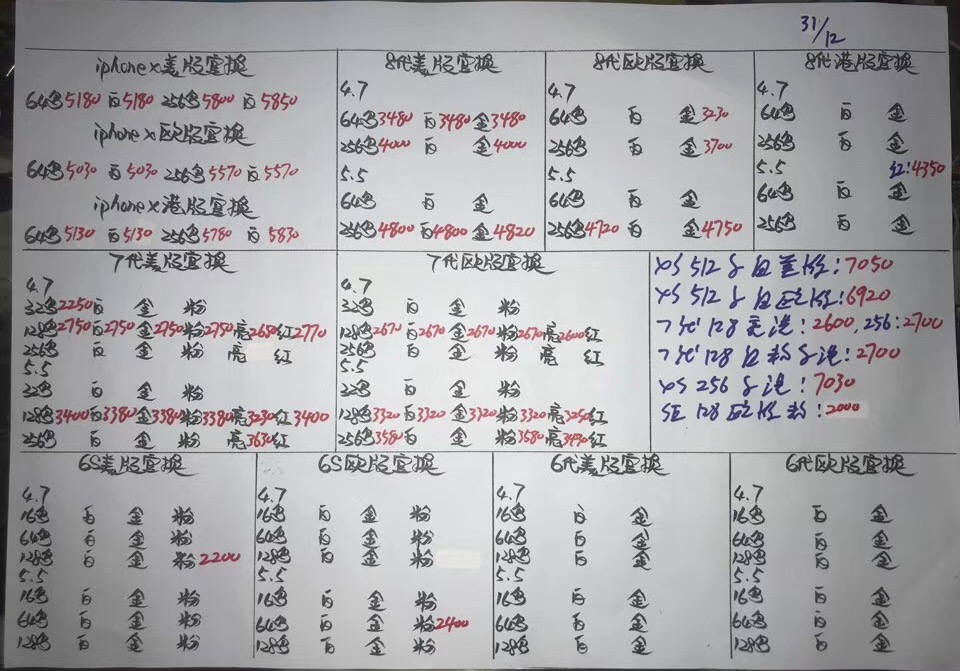 31/12
iphone x美版官换
64色5180 白5180 256色5800 白5850
iphone x欧版官换
64色5030 白5030 256色5570 白5570
iphone x港版官换
64色5130 白5130 256色5780 白5830
8代美版官换
4.7
64色3480 白3480 金3480
256色4000 白 金4000
5.5
64色 白 金
256色4800 白4800 金4820
8代欧版官换
4.7
64色 白 金3230
256色 白 金3700
5.5
64色 白 金
256色4720 白 金4750
8代港版官换
4.7
64色 白 金
256色 白 金
5.5 红:4350
64色 白 金
256色 白 金
7代美版官换
4.7
32色2250白 金 粉
128色2750白2750金2750粉2750亮2680红2770
256色 白 金 粉 亮 红
5.5
32色 白 金 粉
128色3400白3380金3380粉3380亮3230红3400
256色 白 金 粉 亮3630红
7代欧版官换
4.7
32色 白 金 粉
128色2670白2670金2670粉2670亮2600红
256色 白 金 粉 亮 红
5.5
32色 白 金 粉
128色3320白3320金3320粉3320亮3250红
256色3580白 金 粉3580亮3490红
XS 512 白 :7050
XS 512 白欧版:6920
7代 128 港:2600, 256:2700
7代 128 白粉 港:2700
XS 256 港:7030
SE 128 欧版粉:2000
6S美版官换
4.7
16色 白 金 粉
64色 白 金 粉
128色 白 金 粉2200
5.5
16色 白 金 粉
64色 白 金 粉
128色 白 金 粉
6S欧版官换
4.7
16色 白 金 粉
64色 白 金 粉
128色 白 金 粉
5.5
16色 白 金 粉
64色 白 金 粉2400
128色 白 金 粉
6代美版官换
4.7
16色 白 金
64色 白 金
128色 白 金
5.5
16色 白 金
64色 白 金
128色 白 金
6代欧版官换
4.7
16色 白 金
64色 白 金
128色 白 金
5.5
16色 白 金
64色 白 金
128色 白 金